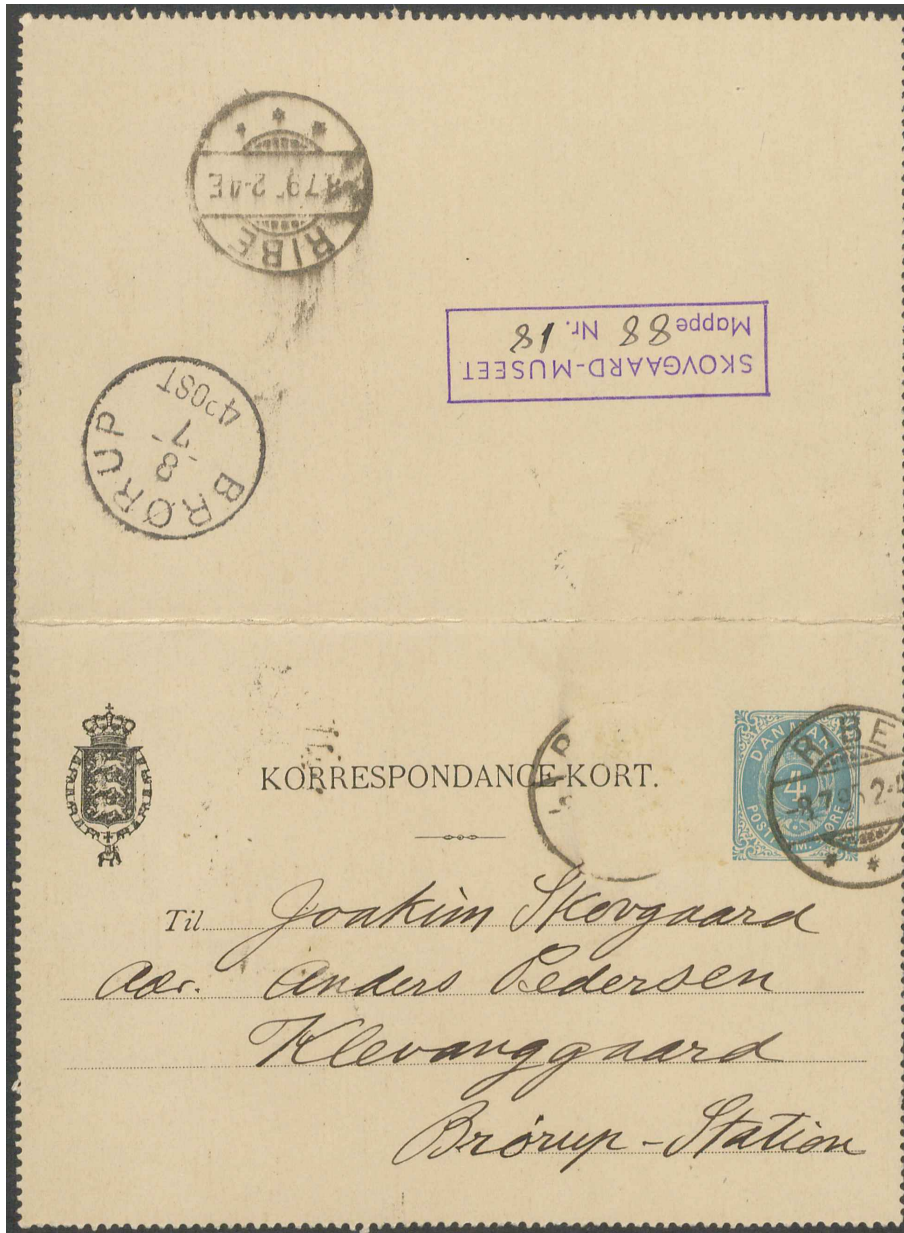 RIBE
SKOVGAARD-MUSEET
Mappe 88 Nr. 18
BRØRUP
8
7
4 POST
KORRESPONDANCE-KORT.
DANMARK
4
POSTFRM. ØRE
RIBE
Til Joakim Skovgaard
adr. Anders Pedersen
Klevanggaard
Brørup-Station